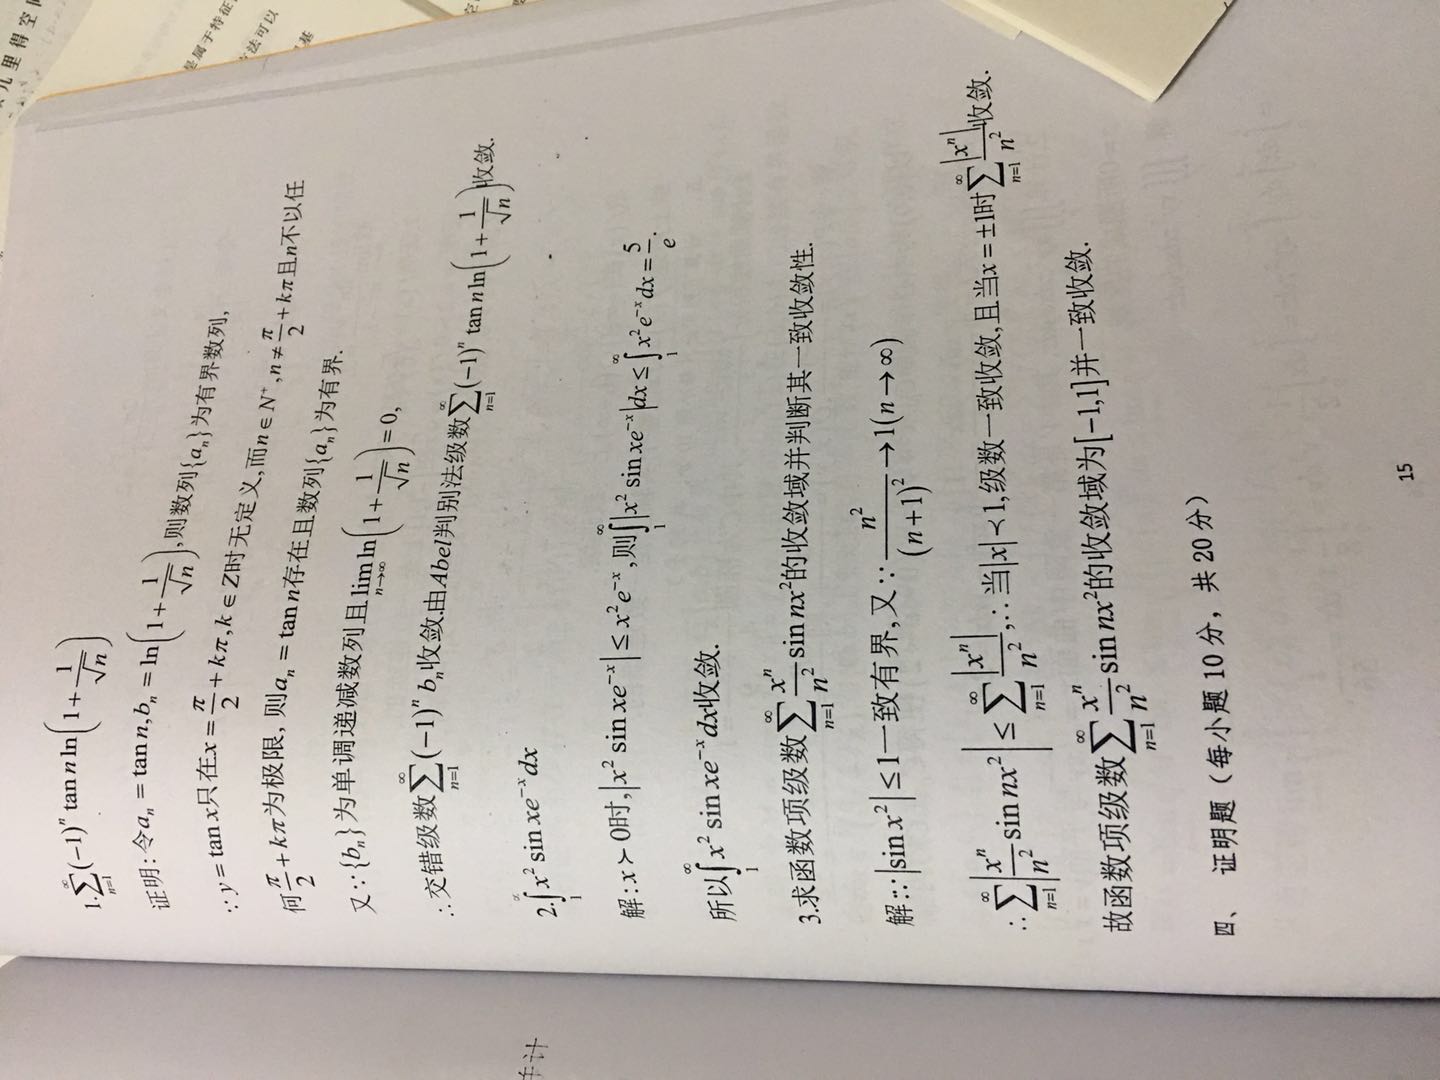 1.∑_{n=1}^{∞}(-1)^n tan n ln(1+1/√n)
证明:令a_n=tan n,b_n=ln(1+1/√n),则数列{a_n}为有界数列,
∵y=tan x只在x=π/2+kπ,k∈Z时无定义,而n∈N⁺,n≠π/2+kπ且n不以任
何π/2+kπ为极限,则a_n=tan n存在且数列{a_n}为有界.
又∵{b_n}为单调递减数列且lim_{n→∞} ln(1+1/√n)=0,
∴交错级数∑_{n=1}^{∞}(-1)^n b_n收敛.由Abel判别法级数∑_{n=1}^{∞}(-1)^n tan n ln(1+1/√n)收敛.
2.∫_1^∝ x² sin xe^{-x}dx
解:x≻0时,|x² sin xe^{-x}|≤x²e^{-x},则∫_1^∞|x² sin xe^{-x}|dx≤∫_1^∞ x²e^{-x}dx=5/e.
所以∫_1^∞ x² sin xe^{-x}dx收敛.
3.求函数项级数∑_{n=1}^{∞} x^n/n² sin nx²的收敛域并判断其一致收敛性.
解:∵|sin x²|≤1一致有界,又∵n²/(n+1)²→1(n→∞)
∴∑_{n=1}^{∞}|x^n/n² sin nx²|≤∑_{n=1}^{∞}|x^n|/n²,∴当|x|≺1,级数一致收敛,且当x=±1时∑_{n=1}^{∞}|x^n|/n²收敛.
故函数项级数∑_{n=1}^{∞} x^n/n² sin nx²的收敛域为[-1,1]并一致收敛.
四、 证明题（每小题 10 分，共 20 分）
15